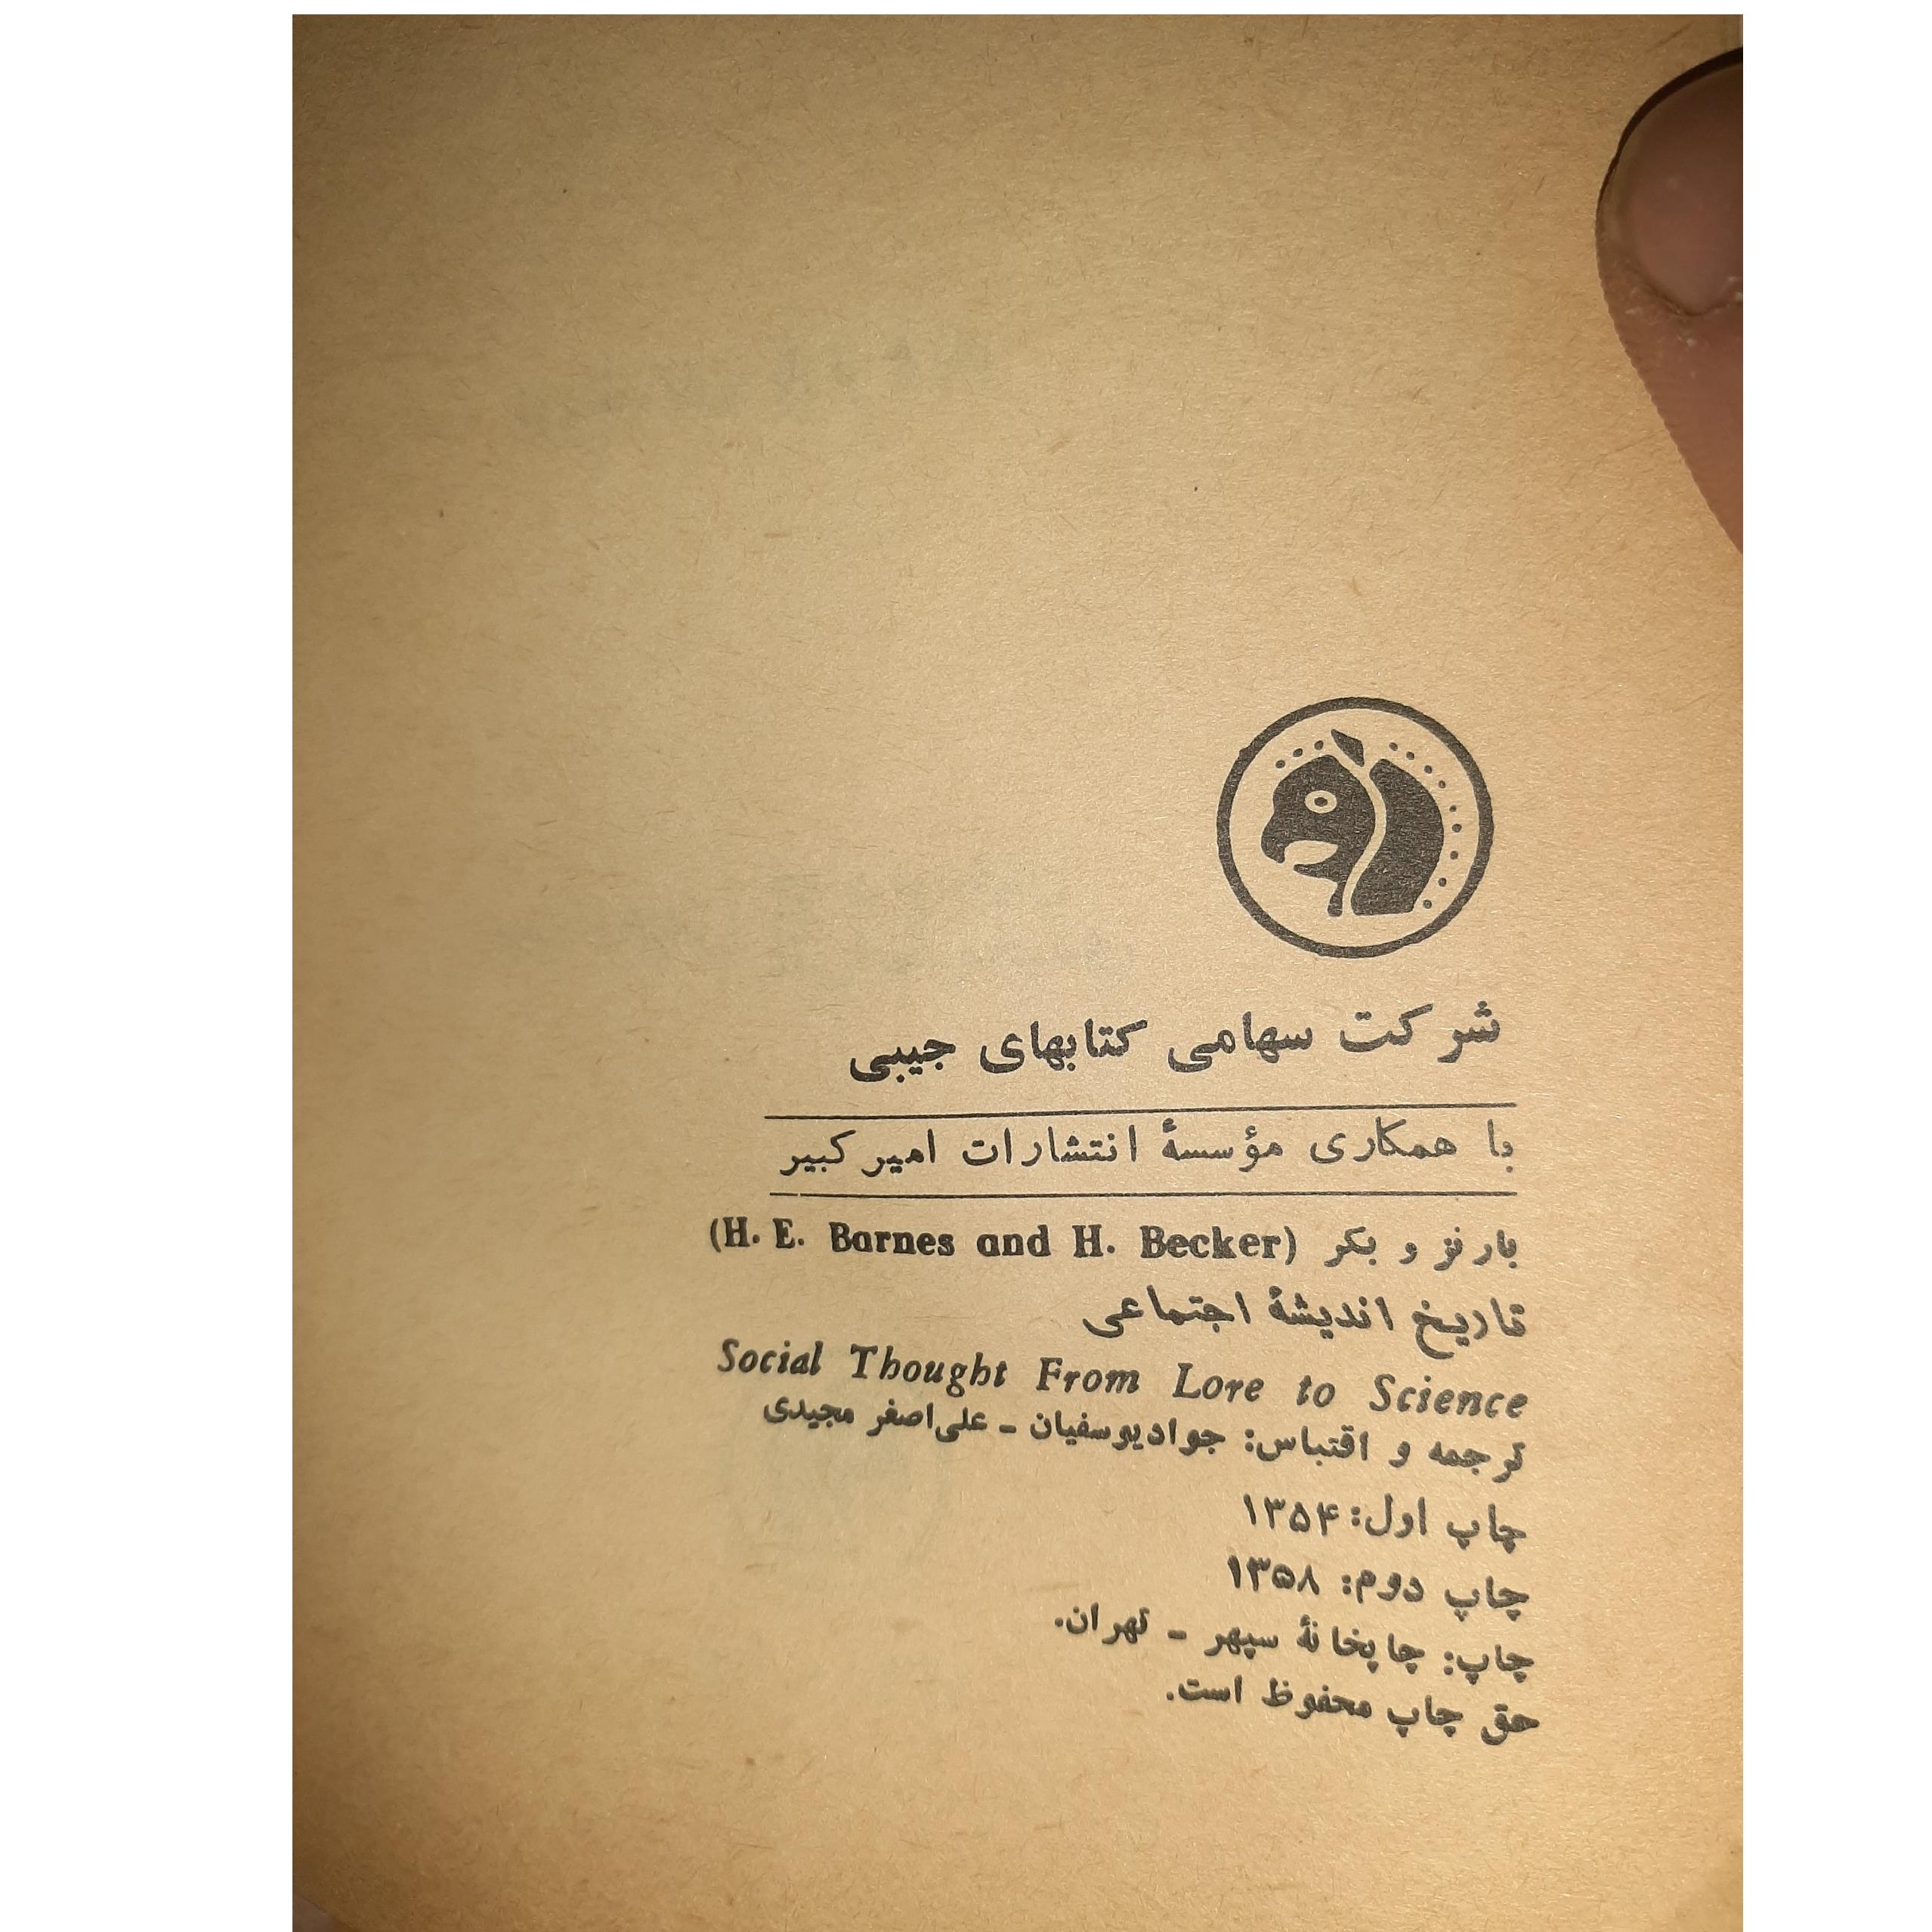 شرکت سهامی کتابهای جیبی
با همکاری مؤسسهٔ انتشارات امیرکبیر
بارنز و بکر (H. E. Barnes and H. Becker)
تاریخ اندیشهٔ اجتماعی
Social Thought From Lore to Science
ترجمه و اقتباس: جواد یوسفیان ـ علی‌اصغر مجیدی
چاپ اول: ۱۳۵۴
چاپ دوم: ۱۳۵۸
چاپ: چاپخانهٔ سپهر ـ تهران.
حق چاپ محفوظ است.